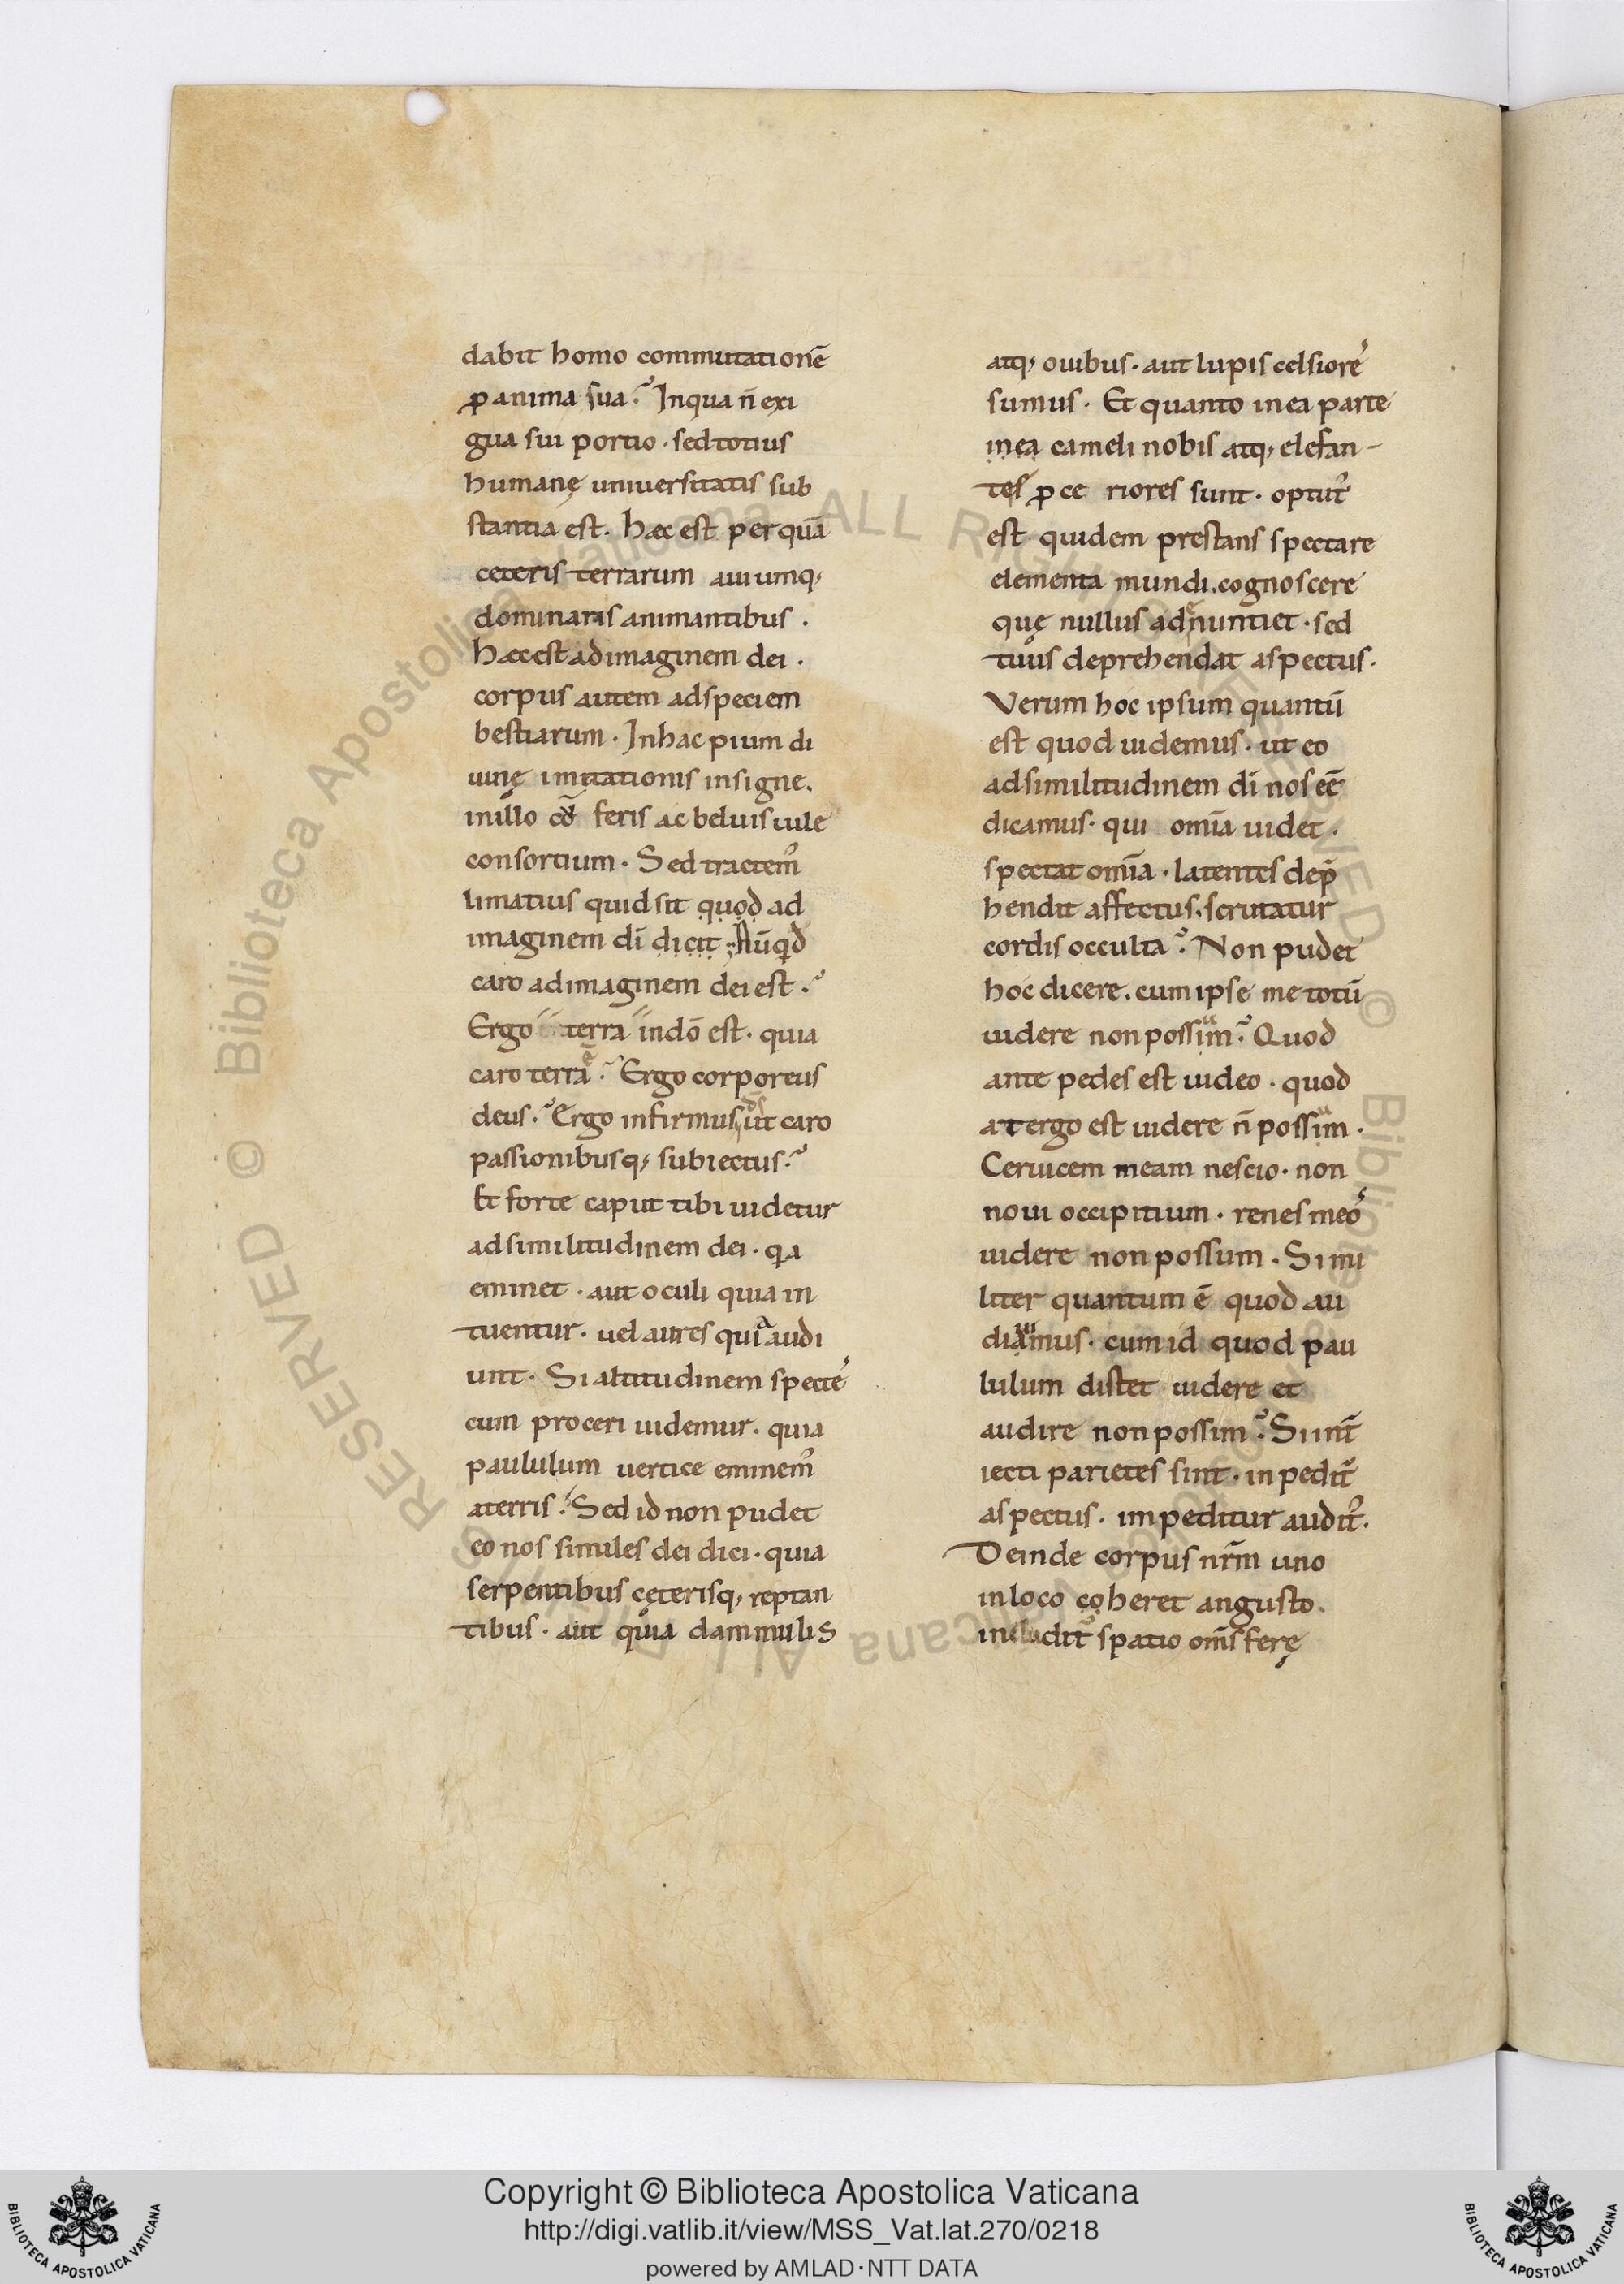 dabit homo commutationē
ꝓ anima sua? Inqua n̄ exi
gua sui portio· sed totius
humanę uniuersitatis sub
stantia est. hæc est per quā
ceteris terrarum auiumq;
dominaris animantibus.
hæc est ad imaginem dei.
corpus autem ad speciem
bestiarum· In hac pium di
uinę imitationis insigne.
in illo feris ac beluis uile
consortium· Sed tractem᷒
limatius quid sit quod ad
imaginem dī dicit; Nūqd
caro ad imaginem dei est?
Ergo terra in dō est· quia
caro terra ē? Ergo corporeus
deus? Ergo infirmus ds ut caro
passionibusq; subiectus?
Et forte caput tibi uidetur
ad similitudinem dei· qa
eminet· aut oculi quia in
tuentur· uel aures quia audi
unt· Si altitudinem specte᷒
cum proceri uidemur· quia
paululum uertice eminem᷒
a terris? Sed id non pudet
eo nos similes dei dici· quia
serpentibus cęterisq; reptan
tibus· aut quia dammulis
atq; ouibus· aut lupis celsiore᷒
sumus· Et quanto in ea parte
in ea cameli nobis atq; elefan-
tes ꝓce riores sunt· optut᷒
est quidem prestans spectare
elementa mundi. cognoscere
quę nullus adnuntiet· sed
tuus deprehendat aspectus·
Verum hoc ipsum quantū
est quod uidemus· ut eo
ad similitudinem dī nos eē
dicamus· qui omīa uidet·
spectat omīa· latentes dep̄
hendit affectus. scrutatur
cordis occulta? Non pudet
hoc dicere. cum ipse me totū
uidere non possim? Quod
ante pedes est uideo· quod
a tergo est uidere n̄ possim·
Ceruicem meam nescio· non
noui occipitium· renes meo᷒
uidere non possum· Simi
liter quantum ē quod au
diamus· cum id quod pau
lulum distet uidere et
audire non possim? Si int̄
iecti parietes sint· inpedit᷒
aspectus· impeditur audit᷒·
Deinde corpus nr̄m uno
in loco coheret angusto.
includit᷒ spatio om̄s ferę
Copyright © Biblioteca Apostolica Vaticana
http://digi.vatlib.it/view/MSS_Vat.lat.270/0218
powered by AMLAD·NTT DATA